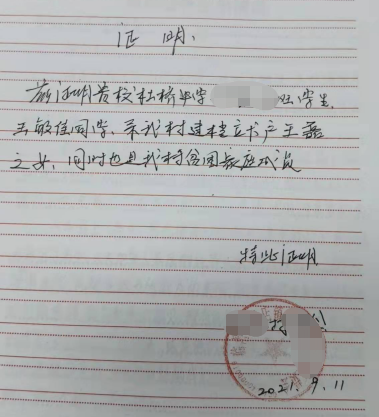 证 明.
兹证明贵校杜桥中学 班学生
王敏佳同学、系我村建档立卡户王磊
之女,同时也是我村贫困家庭成员
特此证明
2021.9.11